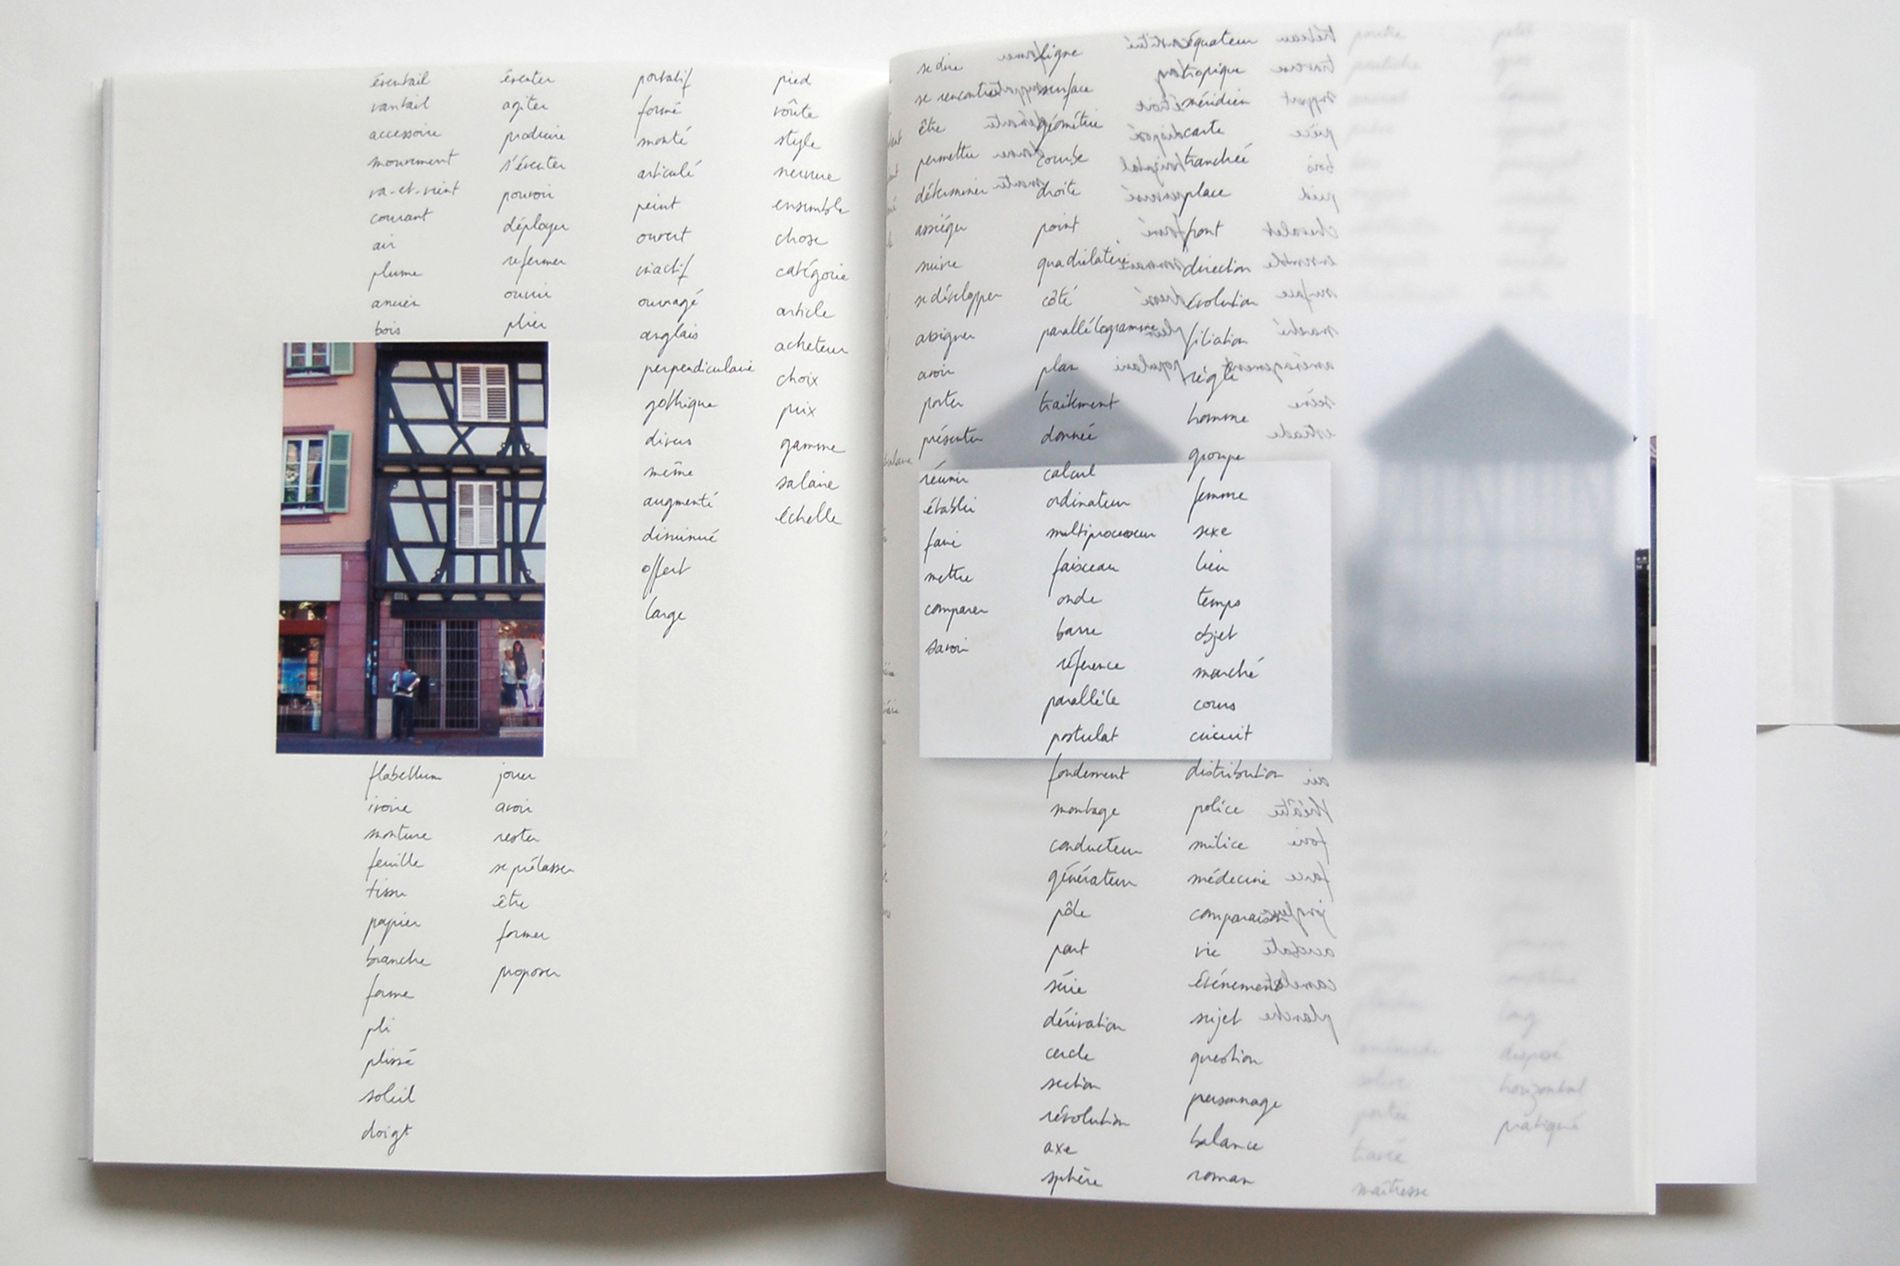 éventail
vantail
accessoire
mouvement
va-et-vient
courant
air
plume
ancien
bois
flabellum
ivoire
monture
feuille
tissu
papier
branche
forme
pli
plissé
soleil
doigt
éventer
agiter
produire
s'éventer
pouvoir
déployer
refermer
ouvrir
plier
jouer
avoir
rester
se prélasser
être
former
proposer
portatif
formé
monté
articulé
peint
ouvert
inactif
ouvragé
anglais
perpendiculaire
gothique
divers
même
augmenté
diminué
offert
large
pied
voûte
style
nervure
ensemble
chose
catégorie
article
acheteur
choix
prix
gamme
salaire
échelle
se dire
se rencontrer
être
permettre
déterminer
assiéger
suivre
se développer
assigner
avoir
porter
présenter
réunir
établir
faire
mettre
comparer
savoir
ligne
surface
géométrie
courbe
droite
point
quadrilatère
côté
parallélogramme
plan
traitement
donnée
calcul
ordinateur
multiprocesseur
faisceau
onde
barre
référence
parallèle
postulat
fondement
montage
conducteur
générateur
pôle
part
série
dérivation
cercle
section
révolution
axe
sphère
équateur
tropique
méridien
carte
tranchée
place
front
direction
évolution
filiation
règle
homme
groupe
femme
sexe
lieu
temps
objet
marché
cours
circuit
distribution
police
milice
médecine
comparaison
vie
événement
sujet
question
personnage
balance
roman
tréteau
traverse
support
pièce
bois
pied
chevalet
ensemble
surface
marché
aménagement
scène
estrade
air
théâtre
foire
farce
jongleur
acrobate
camelot
planche
portée
travée
maîtresse
long
disposé
horizontal
pratiqué